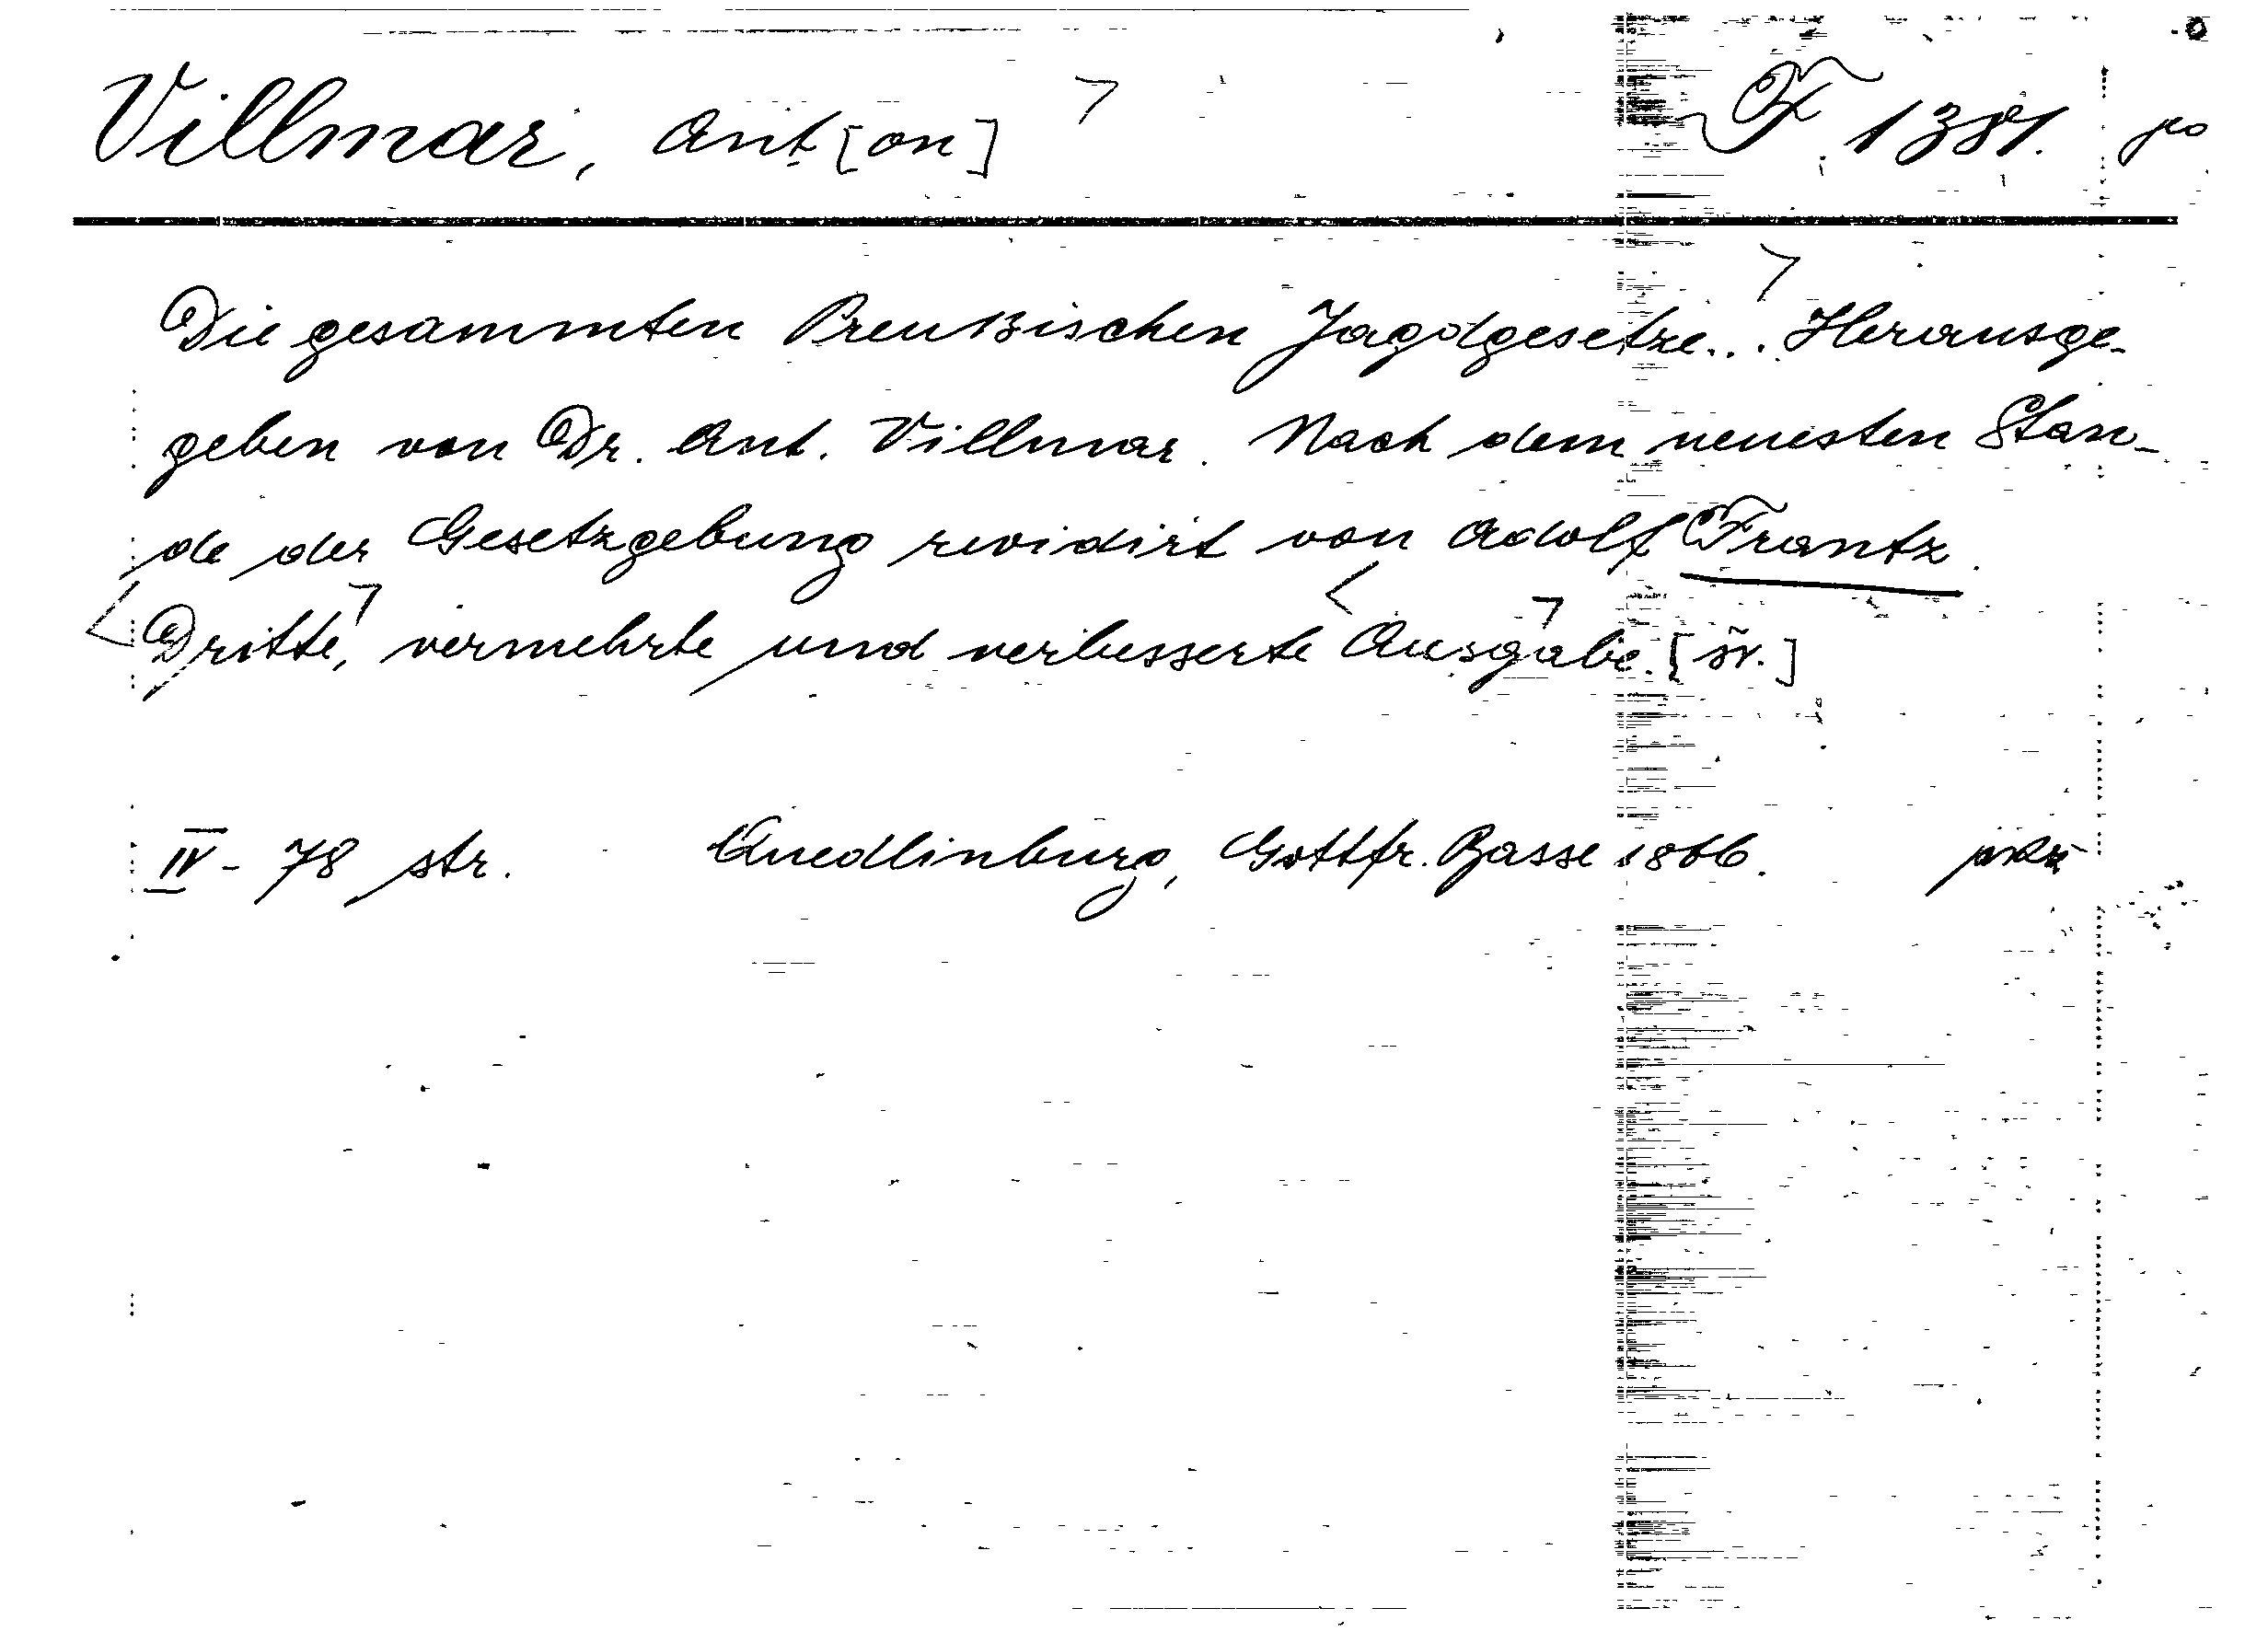 Villmar, Ant[on] F 1381. po
Die gesammten Preußischen Jagdgesetze... Herausge-
geben von Dr. Ant. Villmar. Nach dem neuesten Stan-
de der Gesetzgebung revidirt von Adolf Frantz.
Dritte, vermehrte und verbesserte Ausgabe. [sv.]
IV - 78 str. Quedlinburg, Gottfr. Basse 1866.